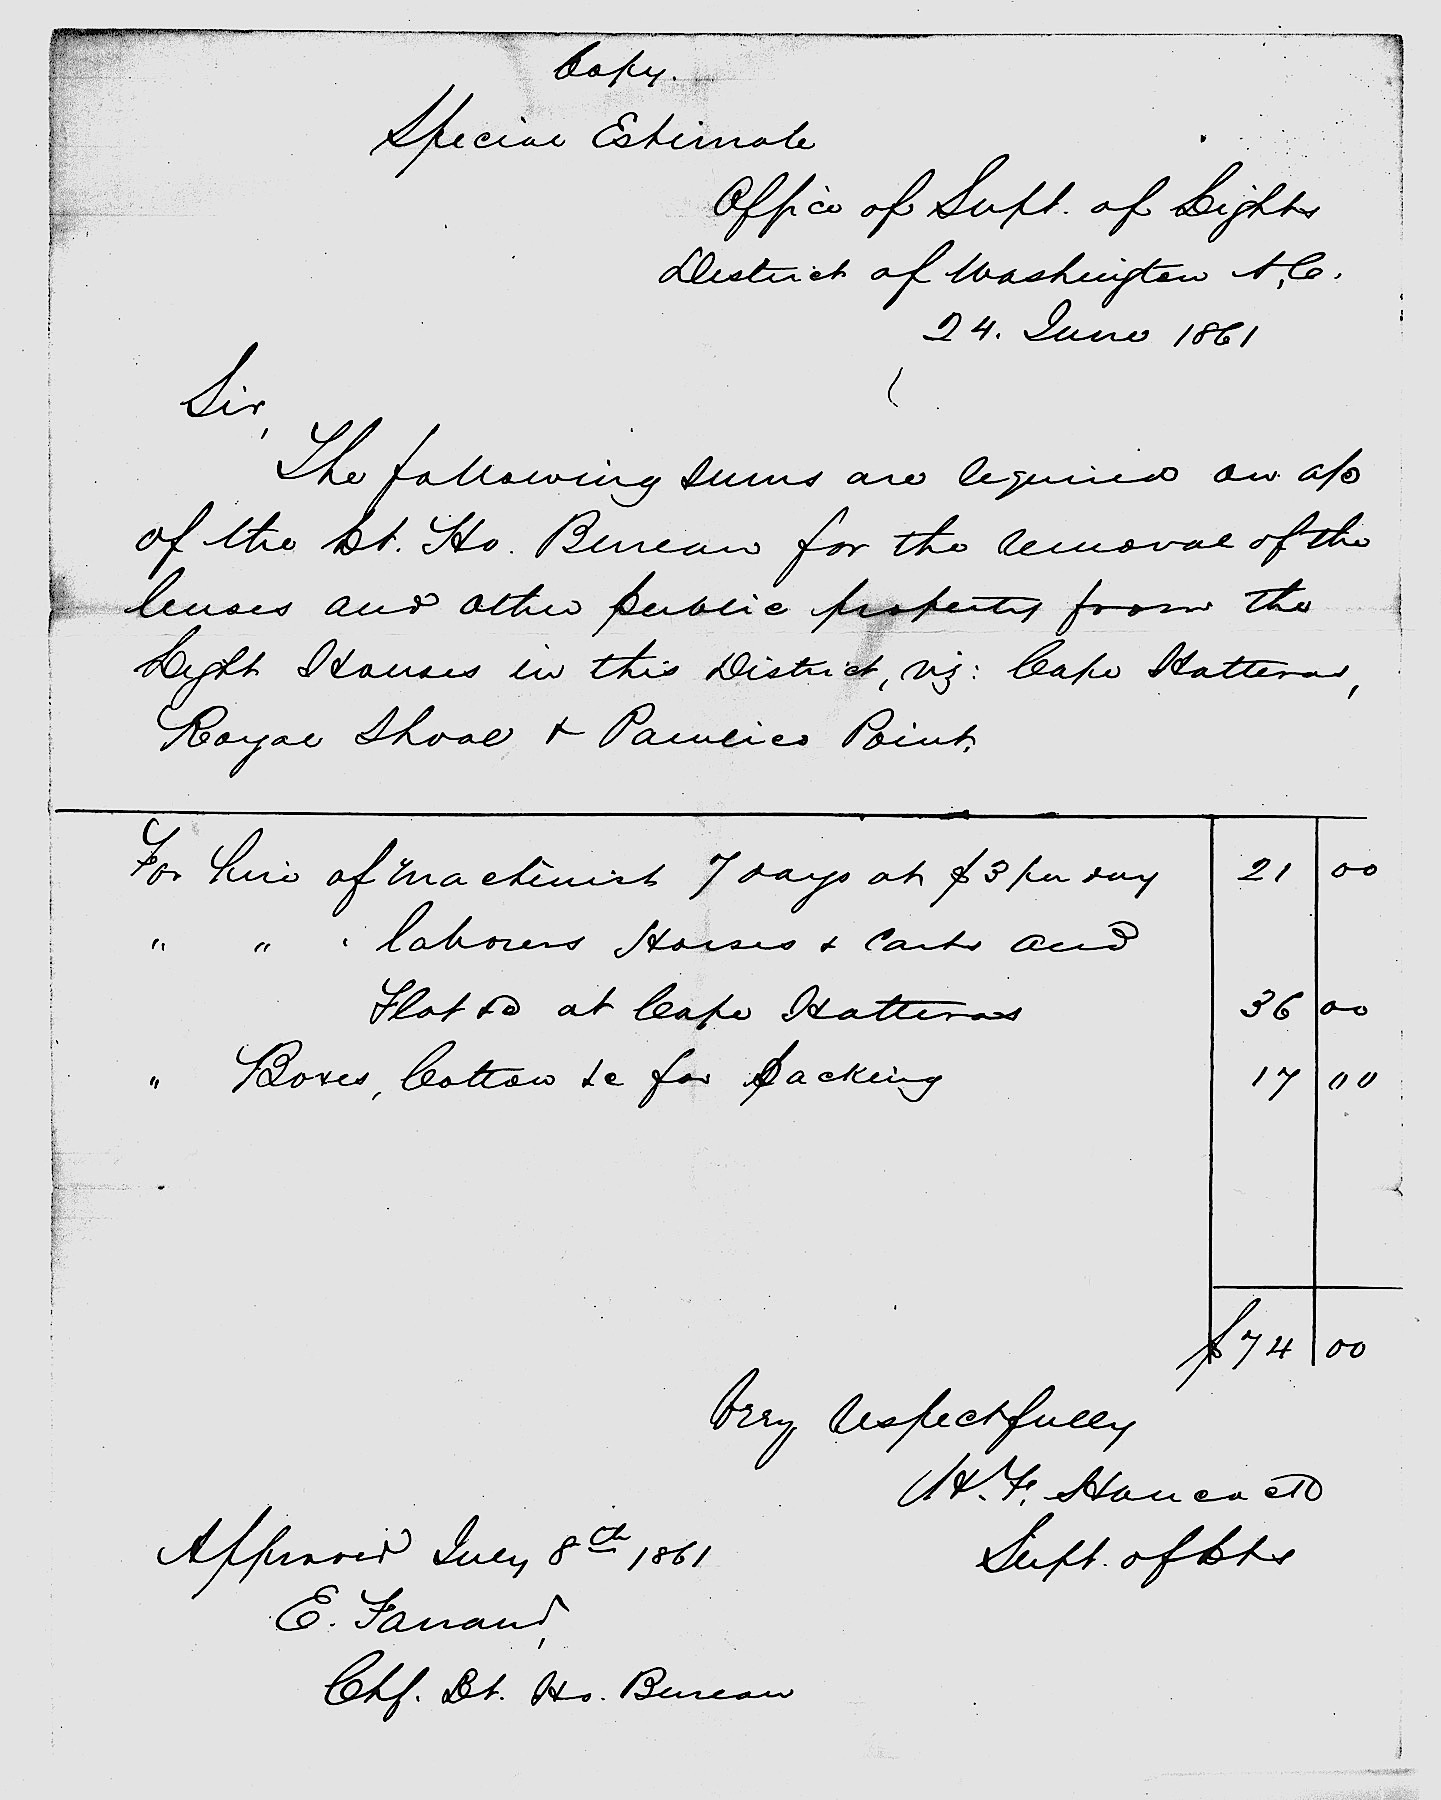 Copy.
Special Estimate
Office of Supt. of Lights
District of Washington N.C.
24. June 1861
Sir,
The following sums are required on a/c
of the Lt. Ho. Bureau for the removal of the
lenses and other public property from the
Light Houses in this District, viz: Cape Hatteras,
Royal Shoal & Pamlico Point.
For hire of Machinist 7 days at $3 per day 21 00
" " " laborers Horses & Carts and
Flat &c at Cape Hatteras 36 00
" Boxes, Cotton &c for packing 17 00
$74 00
Very respectfully
H. F. Hancock
Supt. of Lts
Approved July 8th 1861
E. Farrand,
Chf. Lt. Ho. Bureau